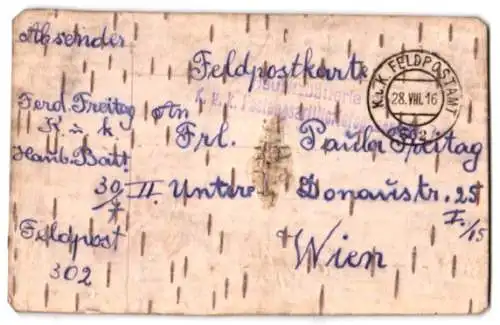 Absender
Ferd. Freitag
K. u. k.
Haub. Batt.
30/4
Feldpost
302
Feldpostkarte
K. u. K.
K.u.K. FELDPOSTAMT
28.VIII.16
302
An
Frl. Paula Freitag
II. Untere Donaustr. 25
I./15
Wien